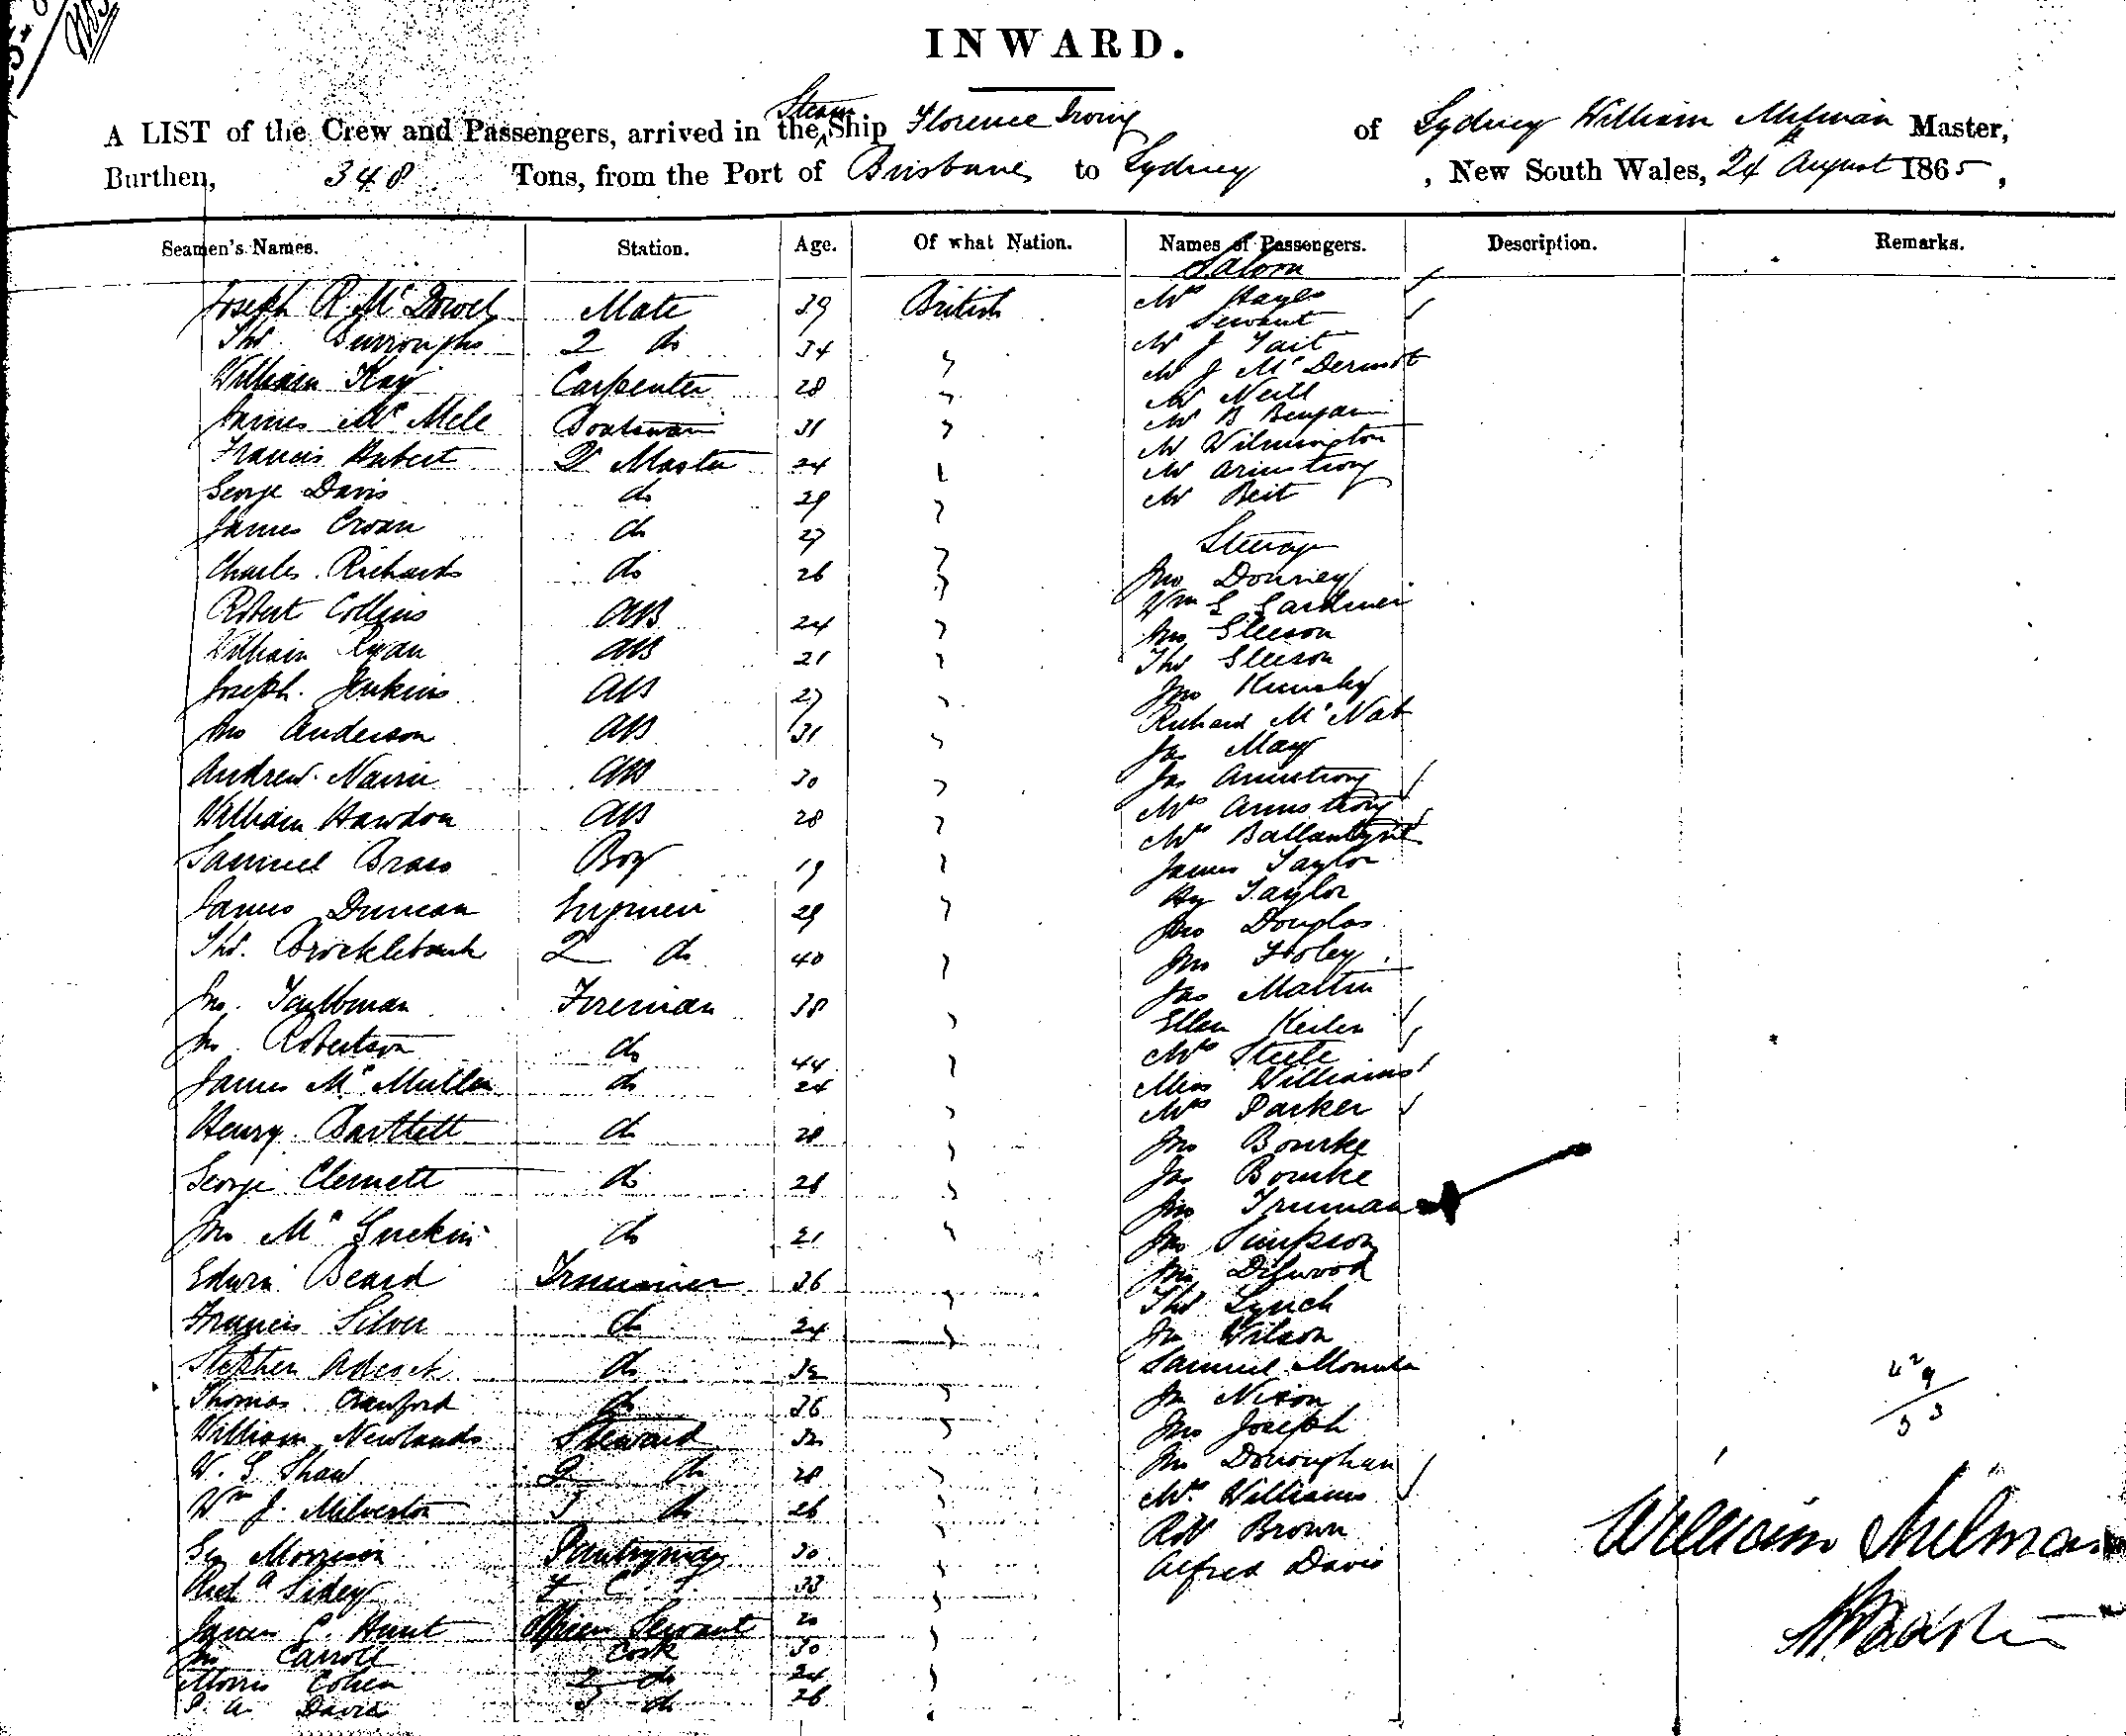 INWARD.
A LIST of the Crew and Passengers, arrived in the Steam Ship Florence Irving of Sydney William Milman Master,
Burthen, 348 Tons, from the Port of Brisbane to Sydney, New South Wales, 24 August 1865,
Seamen's Names. Station. Age. Of what Nation. Names of Passengers. Description. Remarks.
Saloon
Joseph R. McDowel Mate 39 British Mrs Hayes
Servant
Thos Burroughs 2 do 34 " Mr J Tait
William Kay Carpenter 28 " Mr J McDermot
Mr Neill
James McMele Boatswain 31 " Mr B Benjamin
Francis Hubert Qr Master 24 " Mr Wilmington
Mr Armstrong
George Davis do 29 " Mr Beit
James Croan do 27 " Steerage
Charles Richards do 26 " Jno Dourney
Robert Collins AB 24 " Wm G Gardiner
Jno Gleeson
William Ryan AB 21 " Thos Gleeson
Joseph Jenkins AB 27 " Jno
Richard McNab
Jno Anderson AB 31 " Jas May
Andrew Nairn AB 30 " Jas Armstrong
William Hawdon AB 28 " Mrs Armstrong
Mrs Ballantyne
Samuel Brass Boy 19 " James Taylor
James Duncan Engineer 29 " Hy Taylor
Jno Douglas
Thos Brocklebank 2 do 40 " Jno Fooley
Jno Taubman Fireman 38 " Jas Martin
Ellen
Jno Robertson do 44 " Mrs Steele
James McMullen do 24 " Miss Williams
Mrs Parker
Henry Bartlett do 28 " Jno Bourke
George Clemett do 28 " Jas Bourke
Jno Truman
Jno McGuckin do 21 " Jno Simpson
Edwin Beard Trimmer 36 " Jno
Thos Lynch
Francis Silver do 24 " Jno Wilson
Stephen Adcock do 32 " Samuel
Thomas Crawford do 36 " Jno Nixon
William Newlands Steward 32 " Jno Joseph
W. G Shaw 2 do 28 " Jno Donoughan
Wm J. Milverton 3 do 26 " Mrs Williams
Robt Brown
Geo Morrison Pantryman 30 " Alfred Davis
Richd Sidey 33 "
James C. Hunt Officers Servant 20 "
Jno Carroll Cook 30 "
Morris Cohen 2 do 24 "
P. A Davies 3 do 26 "
William Milman